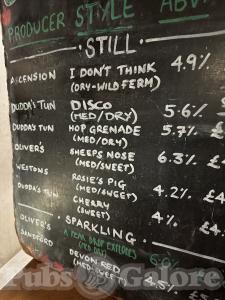 PRODUCER STYLE ABV
· STILL ·
ASCENSION I DON'T THINK 4.9%
(DRY-WILD FERM)
DUDDA'S TUN DISCO 5.6% £
(MED/DRY)
DUDDA'S TUN HOP GRENADE 5.7% £
(MED/DRY)
OLIVER'S SHEEPS NOSE 6.3% £4
(MED/SWEET)
WESTONS ROSIE'S PIG 4.2% £
(MED/SWEET)
DUDDA'S TUN CHERRY 4% £4
(SWEET)
· SPARKLING ·
OLIVER'S 6.0% £
SANDFORD DEVON RED 4.5%
Pubs Galore